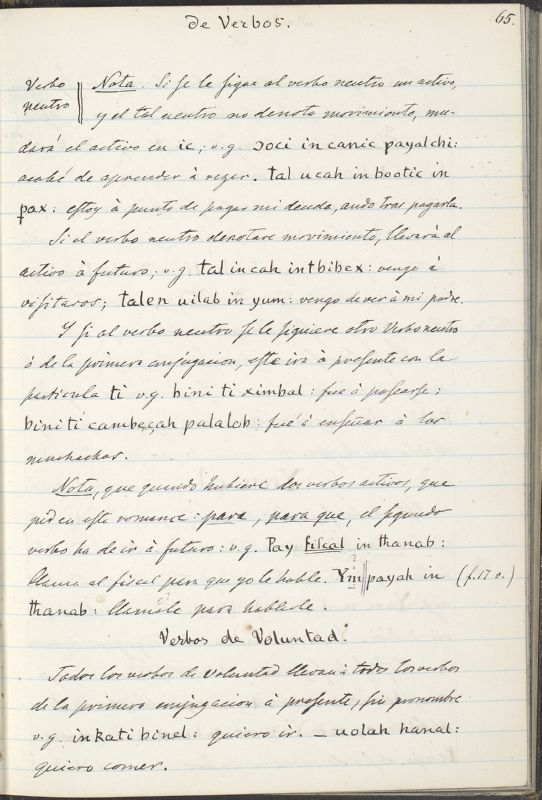 de Verbos.
65.
Verbo neutro
Nota. Si se le sigue al verbo neutro un activo,
y el tal neutro no denota movimiento, mu-
dará el activo en ic; v.g. Ɔoci in canic payalchi:
acabé de aprender á rezar. tal u cah in bootic in
pax: estoy á punto de pagar mi deuda, ando tras pagarla.
Si el verbo neutro denotare movimiento, llevará al
activo á futuro; v.g. tal in cah in thibex: vengo á
visitaros; talen uilab in yum: vengo de ver á mi padre.
Y si al verbo neutro se le siguiere otro Verbo neutro
ó de la primera conjugacion, este irá á presente con la
particula ti v.g. bini ti ximbal: fué á pasearse;
bini ti cambeçah palalob: fué á enseñar á los
muchachos.
Nota, que quando hubiere dos verbos activos, que
piden este romance: para, para que, el segundo
verbo ha de ir á futuro: v.g. Pay fiscal in thanab:
llama al fiscal para que yo le hable. Ym payah in (f. 17 v.)
thanab: llamóle para hablarle.
Verbos de Voluntad.
Todos los verbos de voluntad llevan á todos los verbos
de la primera conjugacion á presente, sin pronombre
v.g. in kati binel: quiero ir. _ uolah hanal:
quiero comer.